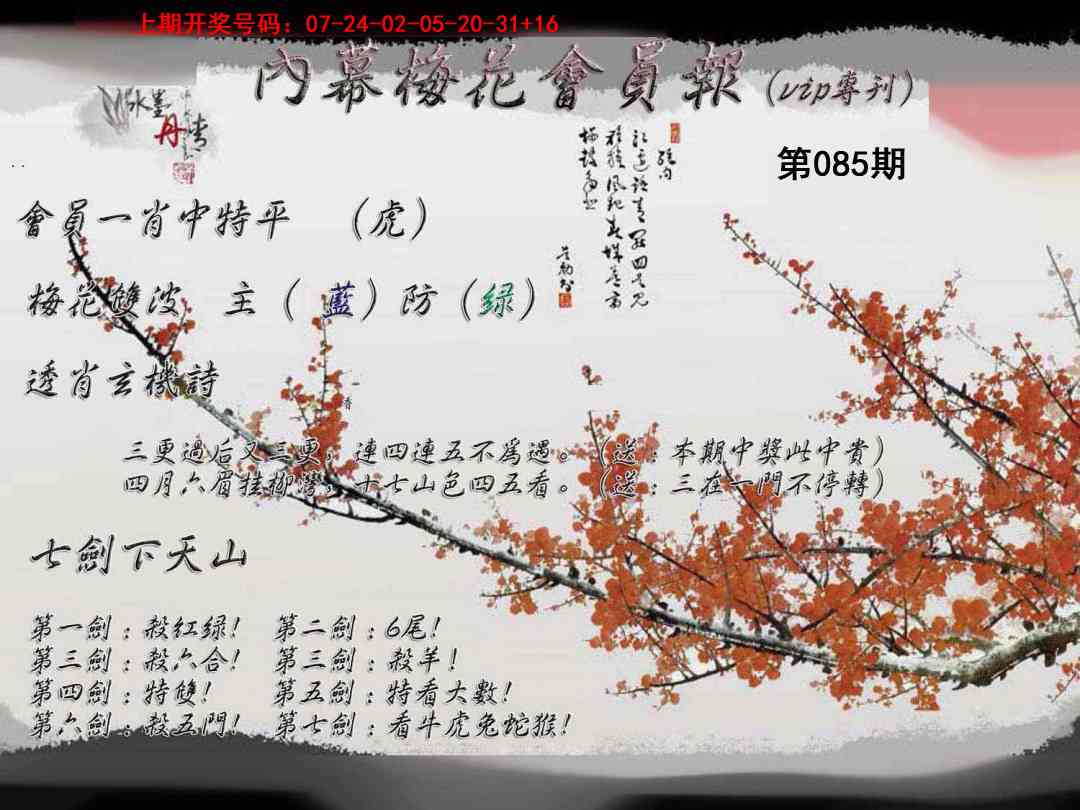 上期开奖号码：07-24-02-05-20-31+16
內幕梅花會員報（vip專刊）
水墨
丹青
第085期
會員一肖中特平 （虎）
梅花雙波 主（藍）防（綠）
透肖玄機詩
三更過后又三更，連四連五不爲遇。（送：本期中獎此中貴）
四月六眉挂柳灣，十七山色四五看。（送：三在一門不停轉）
七劍下天山
第一劍：殺紅绿！ 第二劍：6尾！
第三劍：殺六合！ 第三劍：殺羊！
第四劍：特雙！ 第五劍：特看大數！
第六劍：殺五門！ 第七劍：看牛虎兔蛇猴！